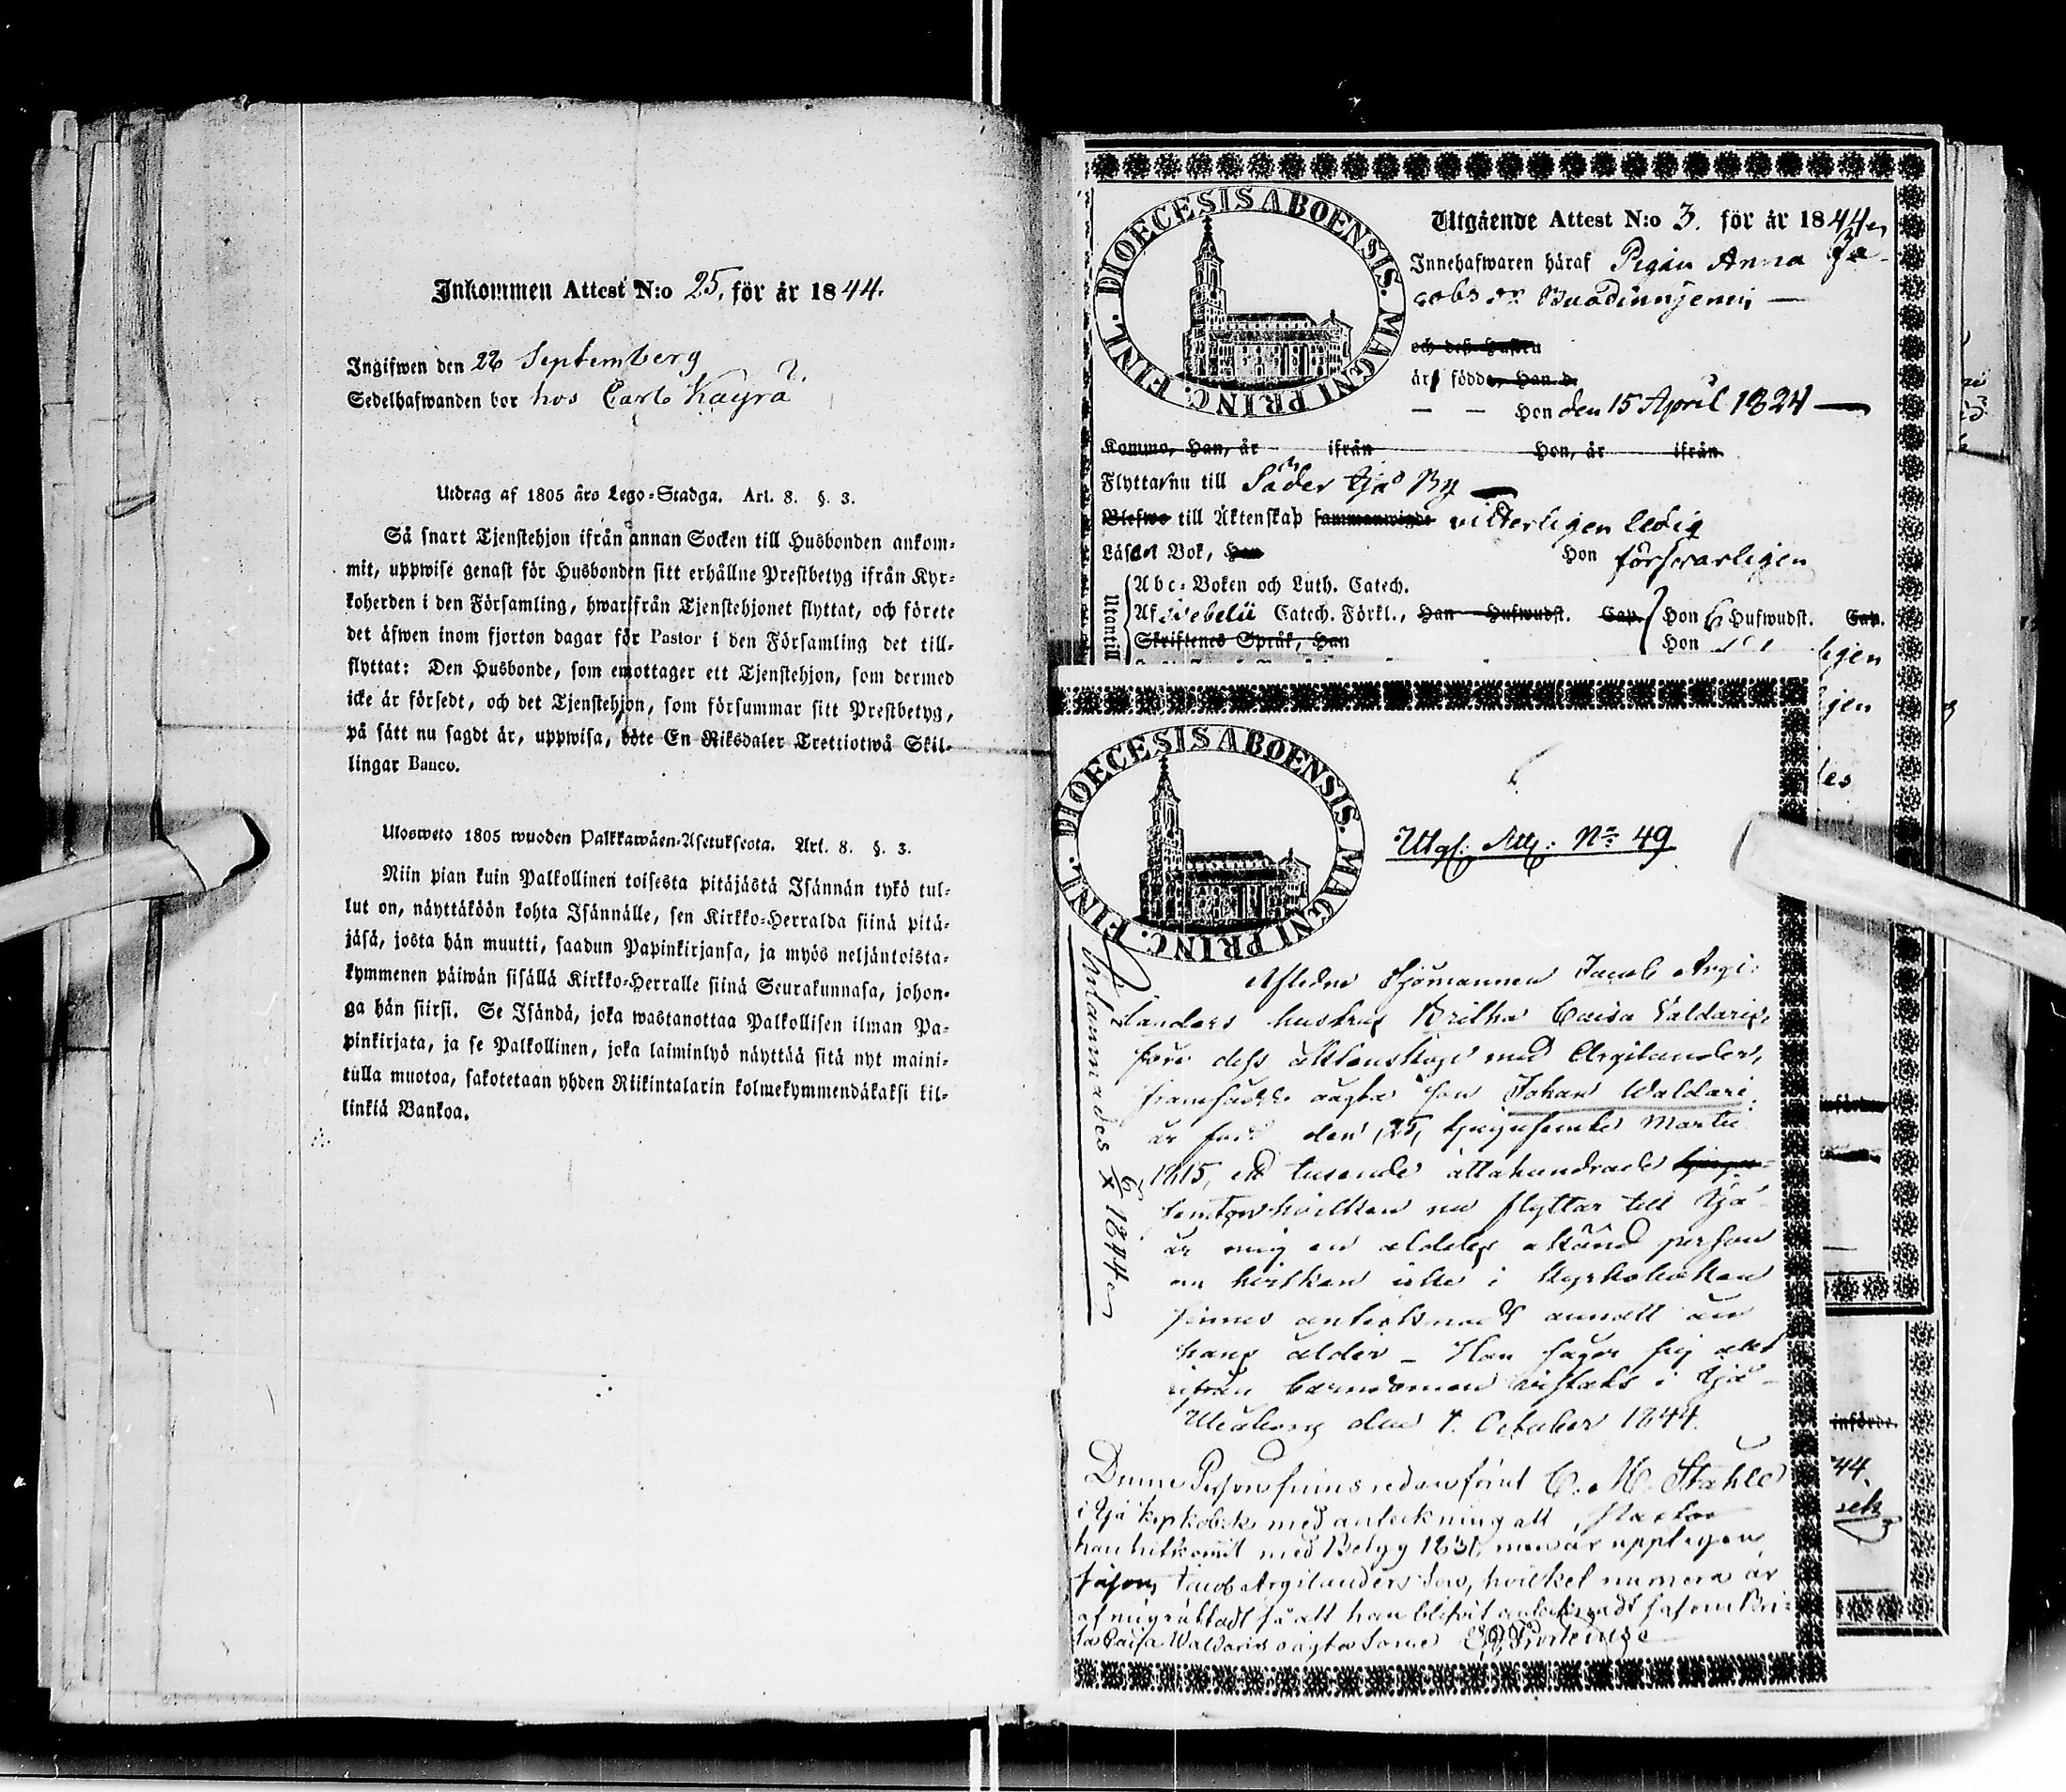 Inkommen Attest N:o 25, för år 1844.
Ingifwen den 26 Septemberg
Sedelhafwanden bor hos Carls Kayra
Utdrag af 1805 års Lego-Stadga. Art. 8. §. 3.
Så snart Tjenstehjon ifrån annan Socken till Husbonden ankom-
mit, uppwise genast för Husbonden sitt erhållne Prestbetyg ifrån Kyr-
koherden i den Församling, hwarifrån Tjenstehjonet flyttat, och förete
det äfwen inom fjorton dagar för Pastor i den Församling det till-
flyttat: Den Husbonde, som emottager ett Tjenstehjon, som dermed
icke är försedt, och det Tjenstehjon, som försummar sitt Prestbetyg,
på sätt nu sagdt är, uppwisa, böte En Riksdaler Trettiotwå Skil-
lingar Banco.
Ulosweto 1805 wuoden Palkkawäen-Asetuksesta. Art. 8. §. 3.
Niin pian kuin Palkollinen toisesta pitäjästä Isännän tykö tul-
lut on, näyttäköön kohta Isännälle, sen Kirkko-Herralda siinä pitä-
jäsä, josta hän muutti, saadun Papinkirjansa, ja myös neljäntoista-
kymmenen päiwän sisällä Kirkko-Herralle siinä Seurakunnasa, johon-
ga hän siirsi. Se Isändä, joka wastanottaa Palkollisen ilman Pa-
pinkirjata, ja se Palkollinen, joka laiminlyö näyttää sitä nyt maini-
tulla muotoa, sakotetaan yhden Riikintalarin kolmekymmendäkaksi kil-
linkiä Bankoa.
DIOECESIS ABOENSIS. MAGNI PRINC. FINL.
Utgående Attest N:o 3. för år 1844
Innehafwaren häraf Pigan Anna Ja-
cobs dr
och dess hustru
är födde, Han d.
Hon den 15 April 1824
Kommo, Han, år ifrån Hon, år ifrån
Flyttar nu till Söder Ijo By
Blefwo till Äktenskap sammanwigde witterligen ledig
Läser Bok, Han Hon försvarligen
Utantill
Abc-Boken och Luth. Catech.
Af Svebelii Catech. Förkl., Han Hufwudst. Cap. Hon 6 Hufwudst. Cap.
Skriftenes Språk, Han Hon
DIOECESIS ABOENSIS. MAGNI PRINC. FINL.
Utgf: Att: No 49
Aflidne Sjömannen Jacob Argi-
landers hustrus Britha Caisa Valdaris,
före dess äktenskap med Argilander,
framfödde oägta son Johan Waldari
är född den 25, tjugufemte Martii
1815, ett tusende åttahundrade
femton hvilken nu flyttar till Ijo
är mig en aldeles okänd person
om hvilken icke i Kyrkoboken
finnes antecknadt annatt än
hans ålder – Han säger sig allt
ifrån barndomen vistats i Ijo –
Uleåborg den 4. October 1844.
C. M. Ståhle
Pastor
Denne Person finnes redan förut
i Ijo kyrkobok med anteckning att
han hitkommit med Betyg 1831, men är upptagen
såsom Jacob Argilanders son, hvilket numera är
af mig rättadt så att han blifvit antecknadt såsom Bri-
ta Caisa Waldaris oägta Son
6/x 1844